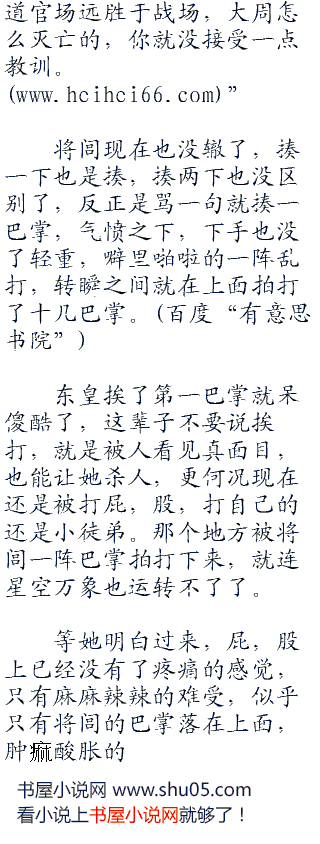 道官场远胜于战场，大周怎
么灭亡的，你就没接受一点
教训。
(www.hcihci66.com)”
将闾现在也没辙了，揍
一下也是揍，揍两下也没区
别了，反正是骂一句就揍一
巴掌，气愤之下，下手也没
了轻重，噼里啪啦的一阵乱
打，转瞬之间就在上面拍打
了十几巴掌。(百度“有意思
书院”)
东皇挨了第一巴掌就呆
傻酷了，这辈子不要说挨
打，就是被人看见真面目，
也能让她杀人，更何况现在
还是被打屁，股，打自己的
还是小徒弟。那个地方被将
闾一阵巴掌拍打下来，就连
星空万象也运转不了了。
等她明白过来，屁，股
上已经没有了疼痛的感觉，
只有麻麻辣辣的难受，似乎
只有将闾的巴掌落在上面，
肿痲酸胀的
书屋小说网 www.shu05.com
看小说上书屋小说网就够了！